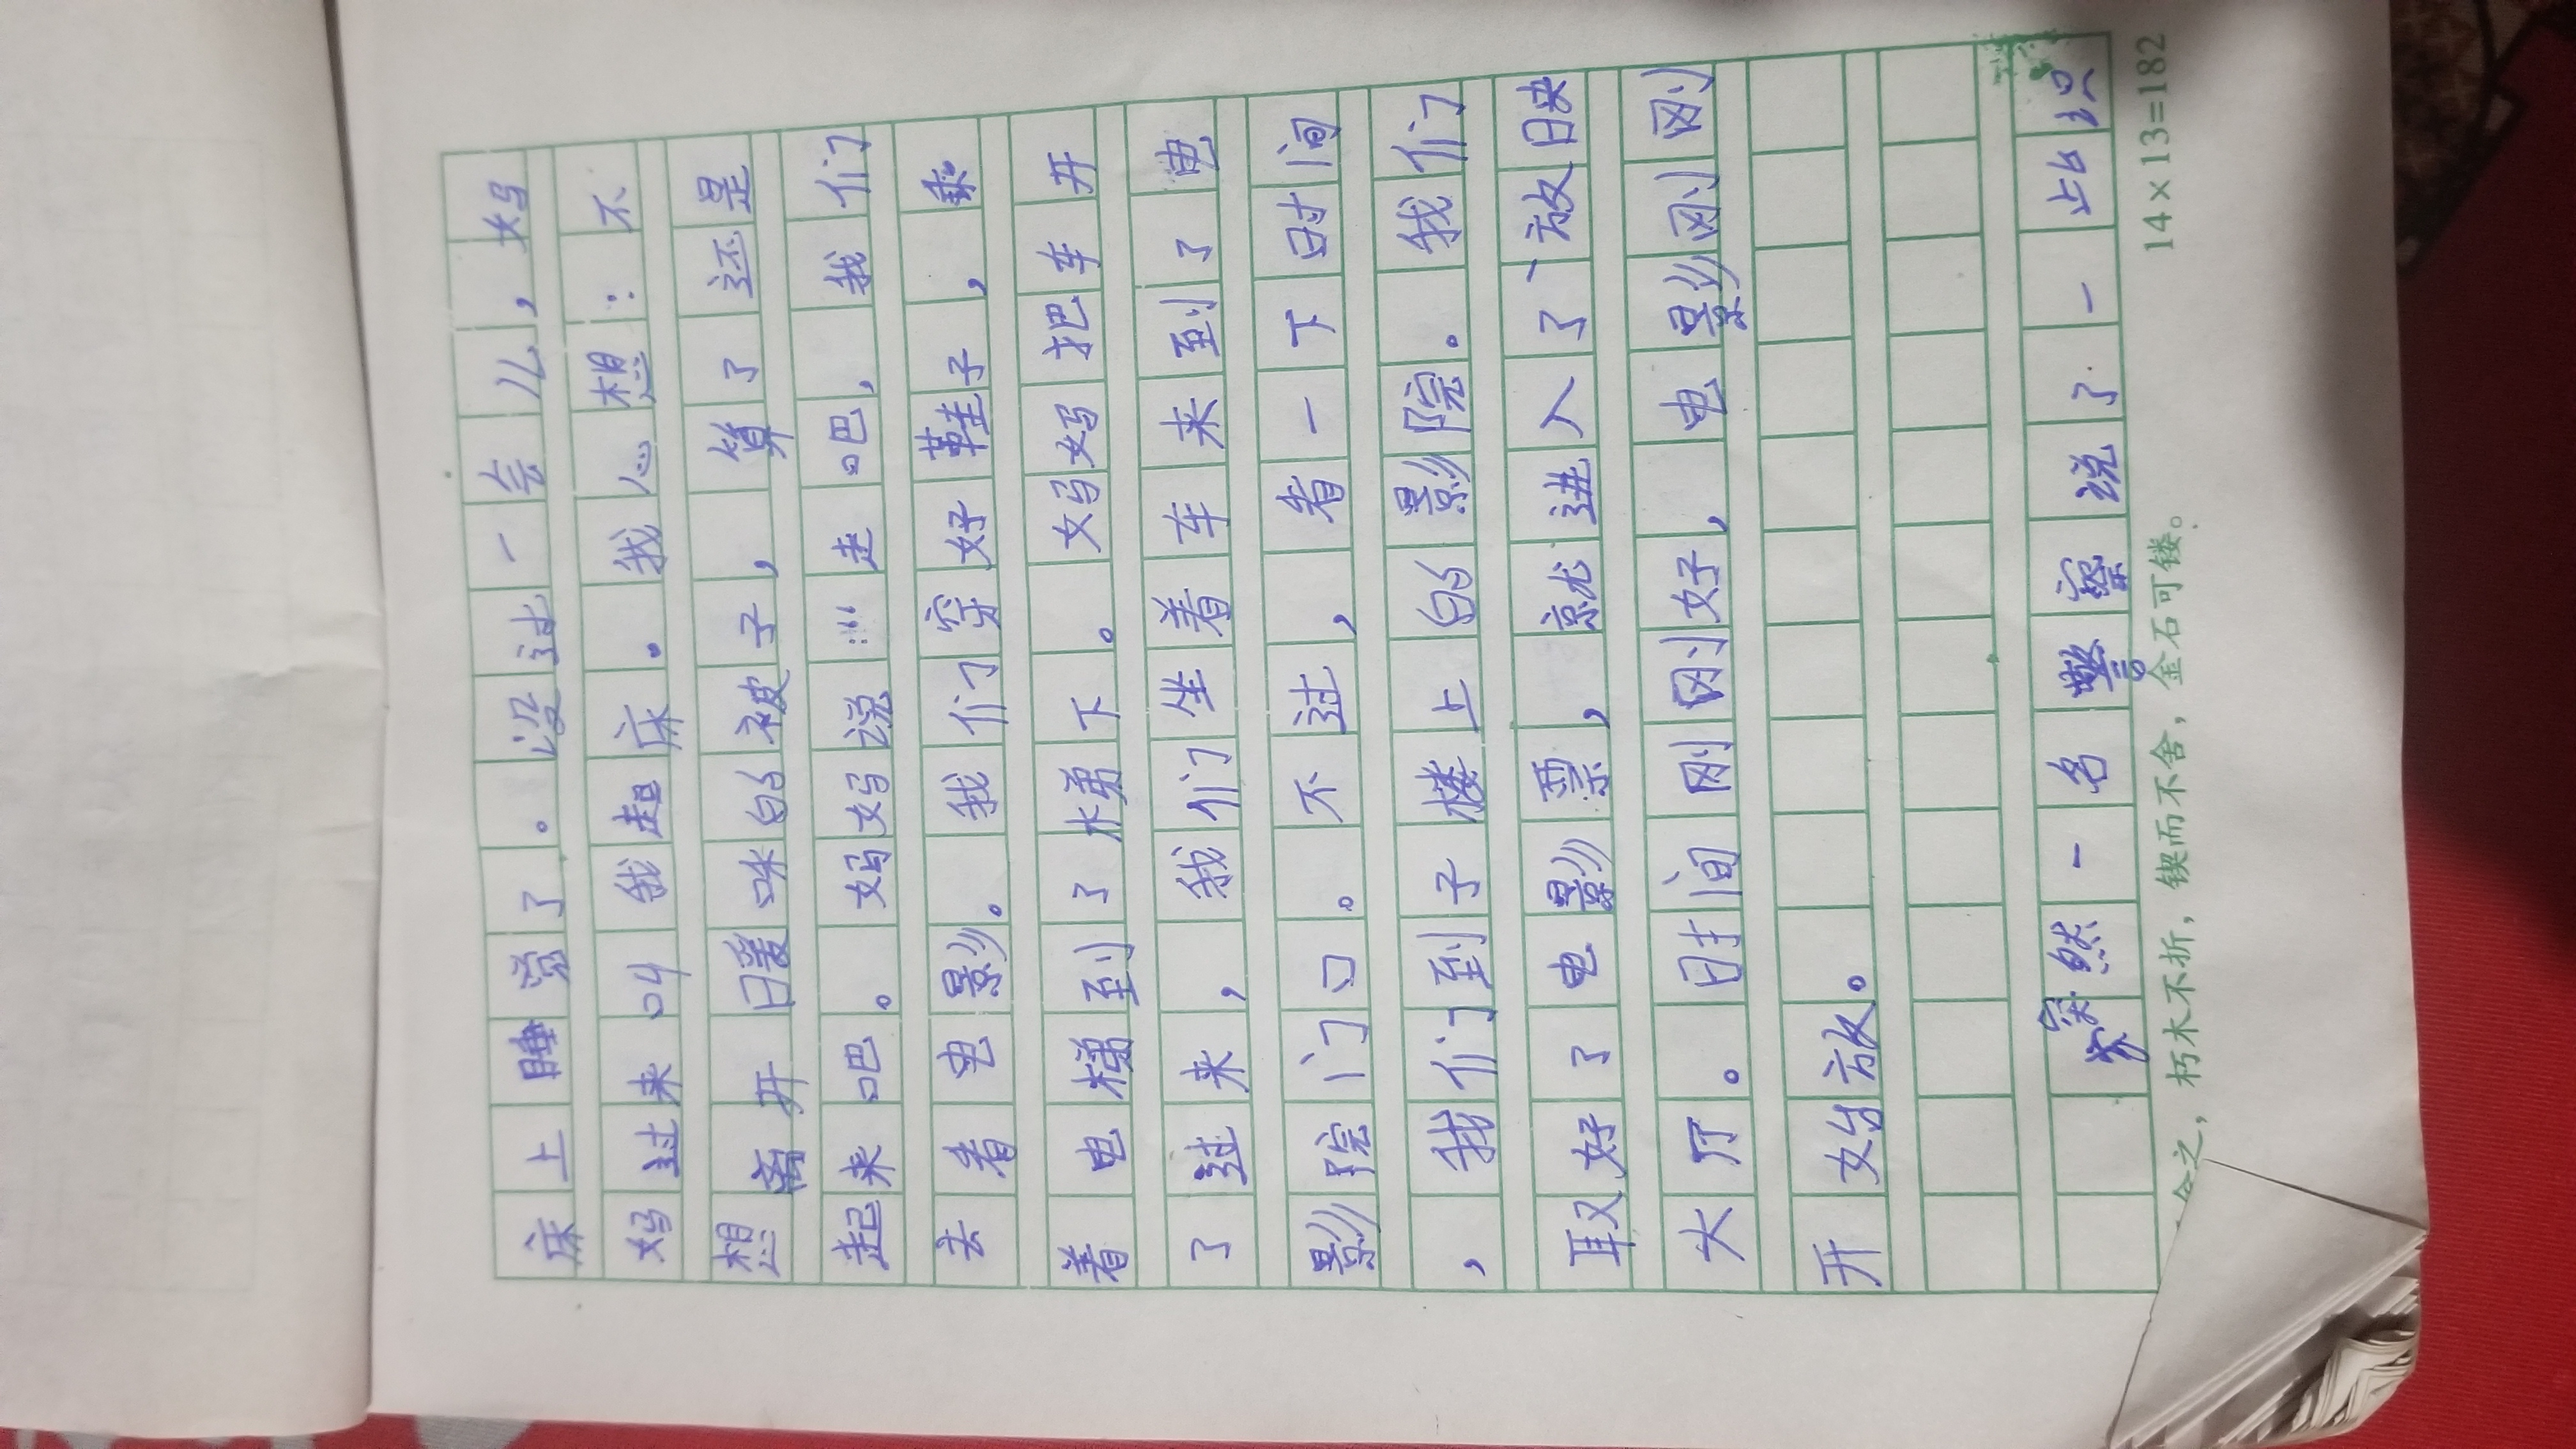 床上睡觉了。没过一会儿,妈
妈过来叫我起床。我心想:不
想离开暖咪的被子,算了还是
起来吧。妈妈说:“走吧,我们
去看电影。我们穿好鞋子,乘
着电梯到了梯下。妈妈把车开
了过来,我们坐着车来到了电
影院门口。不过,看一下时间
,我们到子楼上的影院。我们
取好了电影票,就进人了放映
大厅。时间刚刚好,电影刚刚
开始放。
突然一名警察说了一占识
之,朽木不折,锲而不舍,金石可镂。
14×13=182